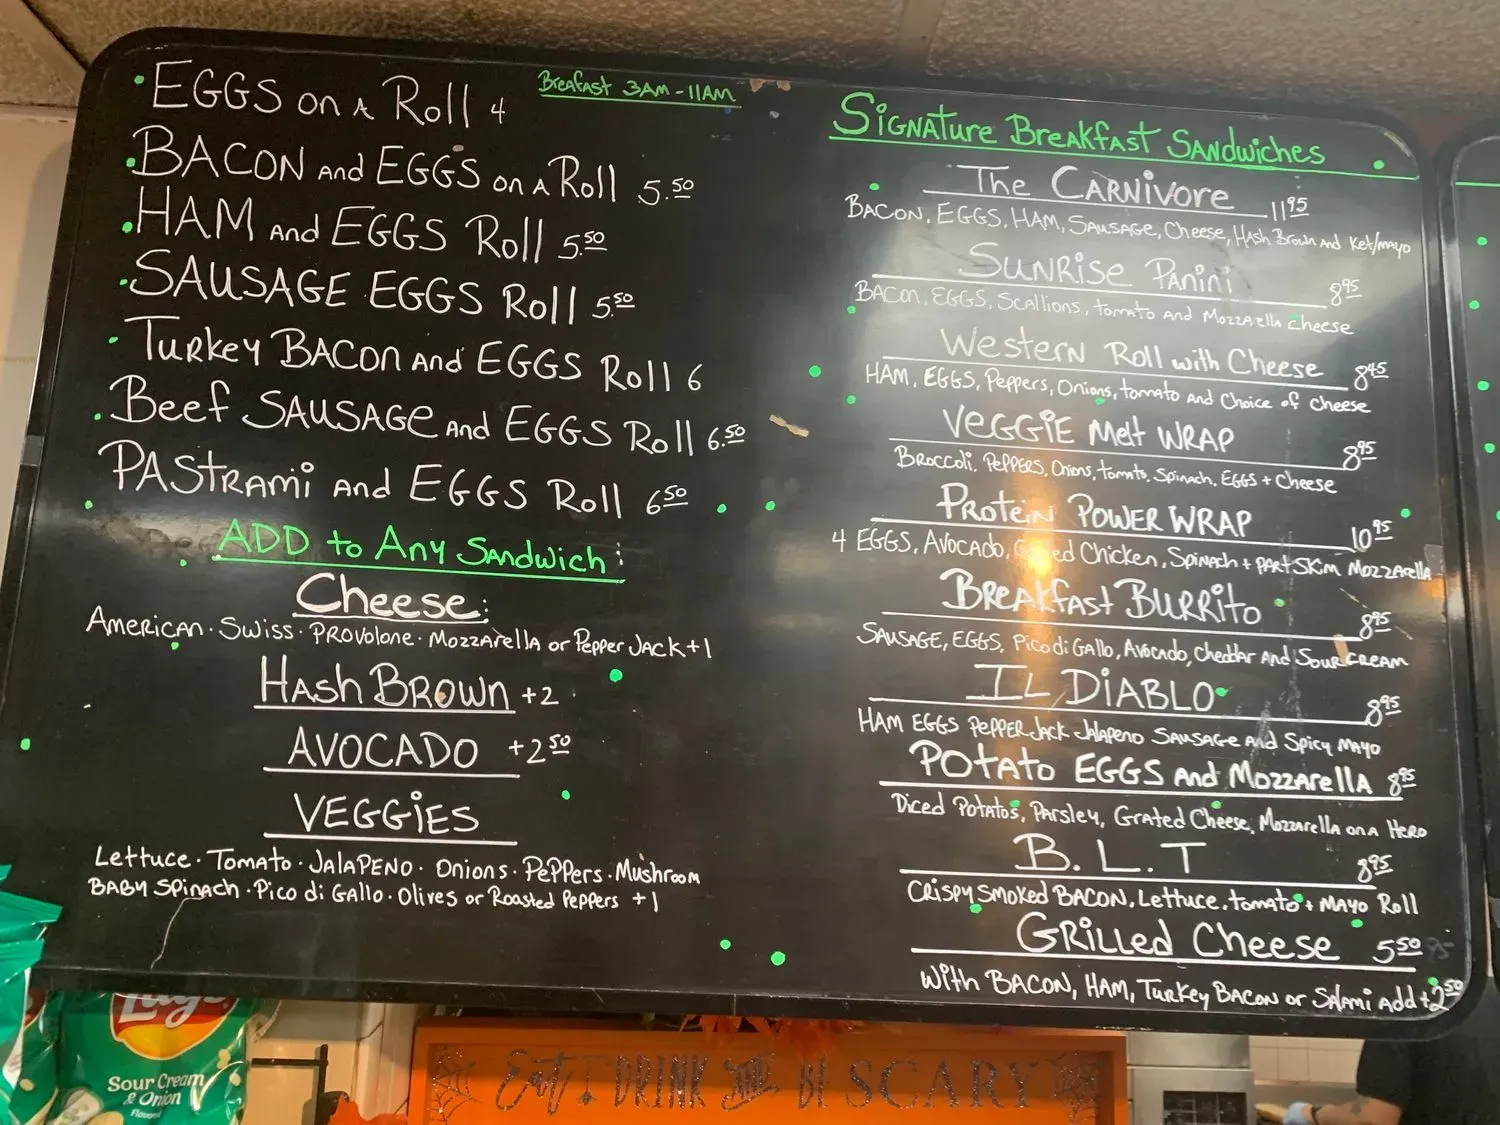 EGGS on A Roll 4
Breafast 3AM-11AM
BACON and EGGS on A Roll 5.50
HAM and EGGS Roll 5.50
SAUSAGE EGGS Roll 5.50
Turkey BACON and EGGS Roll 6
Beef SAUSAGE and EGGS Roll 6.50
PAStrami and EGGS Roll 6 50
ADD to Any Sandwich:
Cheese:
AMERICAN · Swiss · PROVolone · Mozzarella or Pepper JACK +1
HASh BROWN +2
AVOCADO +2 50
VEGGiES
Lettuce · Tomato · JALAPENO · Onions · PePPers · Mushroom
BABY Spinach · Pico di Gallo · Olives or Roasted Peppers +1
SiGNAture Breakfast Sandwiches
The CARNivore 11 95
BACON, EGGS, HAM, SAUSAGE, Cheese, HAsh Brown and Ket/mayo
SUNRiSe PANiNi 8 95
BACON, EGGS, Scallions, tomato and MozzArella cheese
Western Roll with Cheese 8 45
HAM, EGGS, Peppers, Onions, tomato and Choice of Cheese
VeGGiE Melt WRAP 8 95
Broccoli, PePPERS, Onions, tomato, Spinach, EGGS + Cheese
PRotein POWER WRAP 10 95
4 EGGS, Avocado, Chicken, Spinach + PARt SKim Mozzarella
BREAkfast BURRito 8 95
SAUSAGE, EGGS, Pico di Gallo, Avocado, Cheddar and Sour CREAM
IL DiABLO 8 95
HAM EGGS PePPER Jack JAlApeno SAUSAGE and Spicy Mayo
POtAto EGGS and MozzArellA 8 95
Diced Potatos, Parsley, GrAted Cheese, Mozzarella on a Hero
B.L.T 8 95
CRiSpy Smoked BACON, Lettuce, tomato + MAYO Roll
GRilled Cheese 5 50
With BACON, HAM, Turkey BACON or SAlAmi Add +2 50
Lay's
Sour Cream
& Onion
Flavored
Eat DRINK and BE SCARY